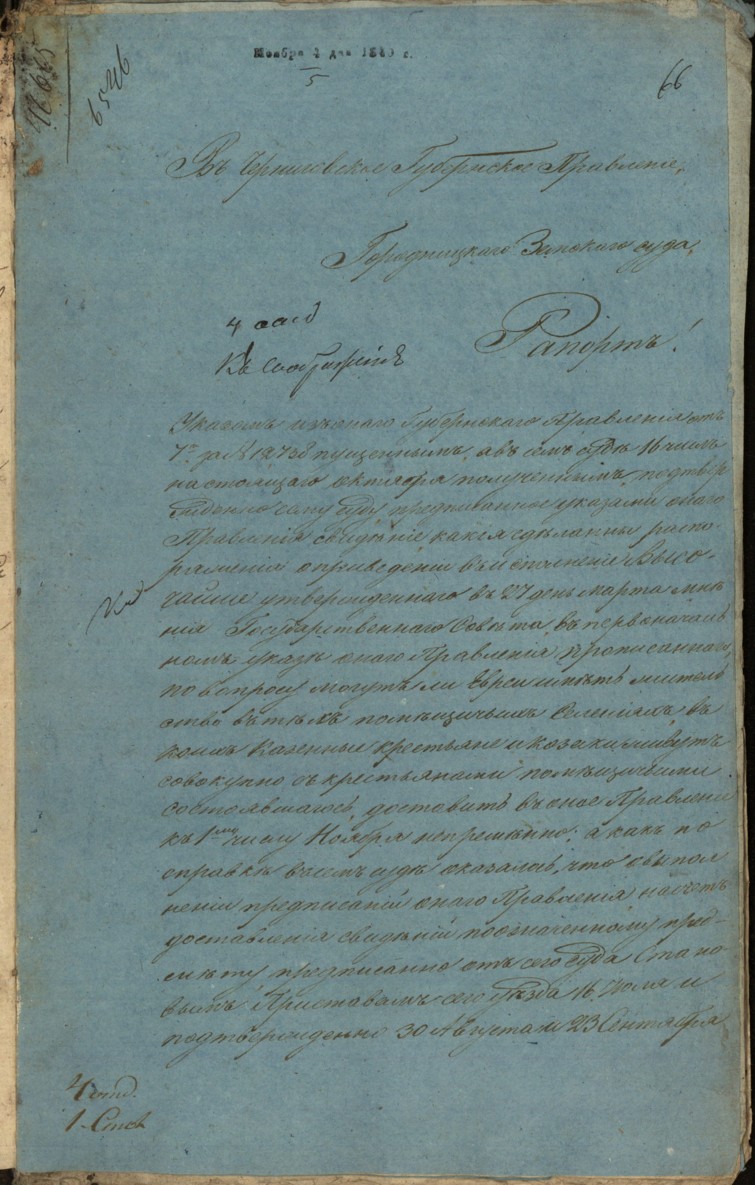 Ноября 4 дня 1840 г.
5
6546
66
Въ Черниговское Губернское Правленіе,
Городницкаго Земскаго суда,
4 отд
Къ соображенію
Рапортъ!
Указомъ изъ онаго Губернскаго Правленія отъ
7го за № пущеннымъ, а въ семъ судѣ 16 числа
настоящаго октября полученнымъ, подтвер
ждено сему суду предписанное указами онаго
Правленія свидѣніе какія сдѣланны распо
ряженія о приведеніи въ исполненіе Высо
чайше утвержденнаго въ 27 день марта мнѣ
нія Государственнаго Совѣта, въ первоначаль
номъ указѣ онаго Правленія прописаннаго,
по вопросу могутъ ли Евреи имѣть житель
ство въ тѣхъ помѣщичьихъ селеніяхъ въ
коихъ казенные крестьяне и козаки живутъ
совокупно съ крестьянами помѣщичьими
состоявшагося, доставить въ оное Правленіе
къ 1му числу Ноября непремѣнно; а какъ по
справкѣ въ семъ судѣ оказалось, что о выпол
неніи предписаній онаго Правленія на счетъ
доставленія свидѣній по означенному пред-
мѣту предписанно отъ сего суда Стано
вымъ Приставамъ сего уѣзда 16 Іюля и
подтвержденно 30 Августа и 23 Сентября
4 отд.